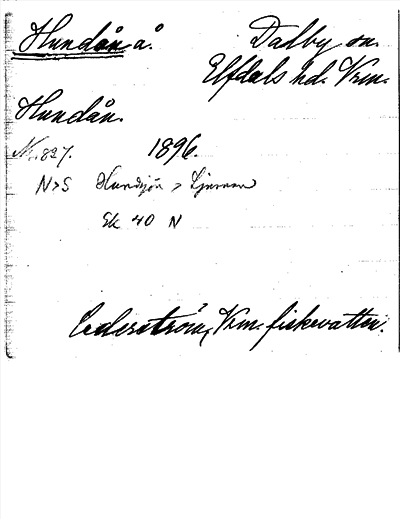 Hundån å. Dalby sn.
Elfdals hd. Vrm.
Hundån.
Nr. 827. 1896.
N>S Hundsjön > Ljusnan
Ek 40 N
Cederström, Vrm. fiskevatten.